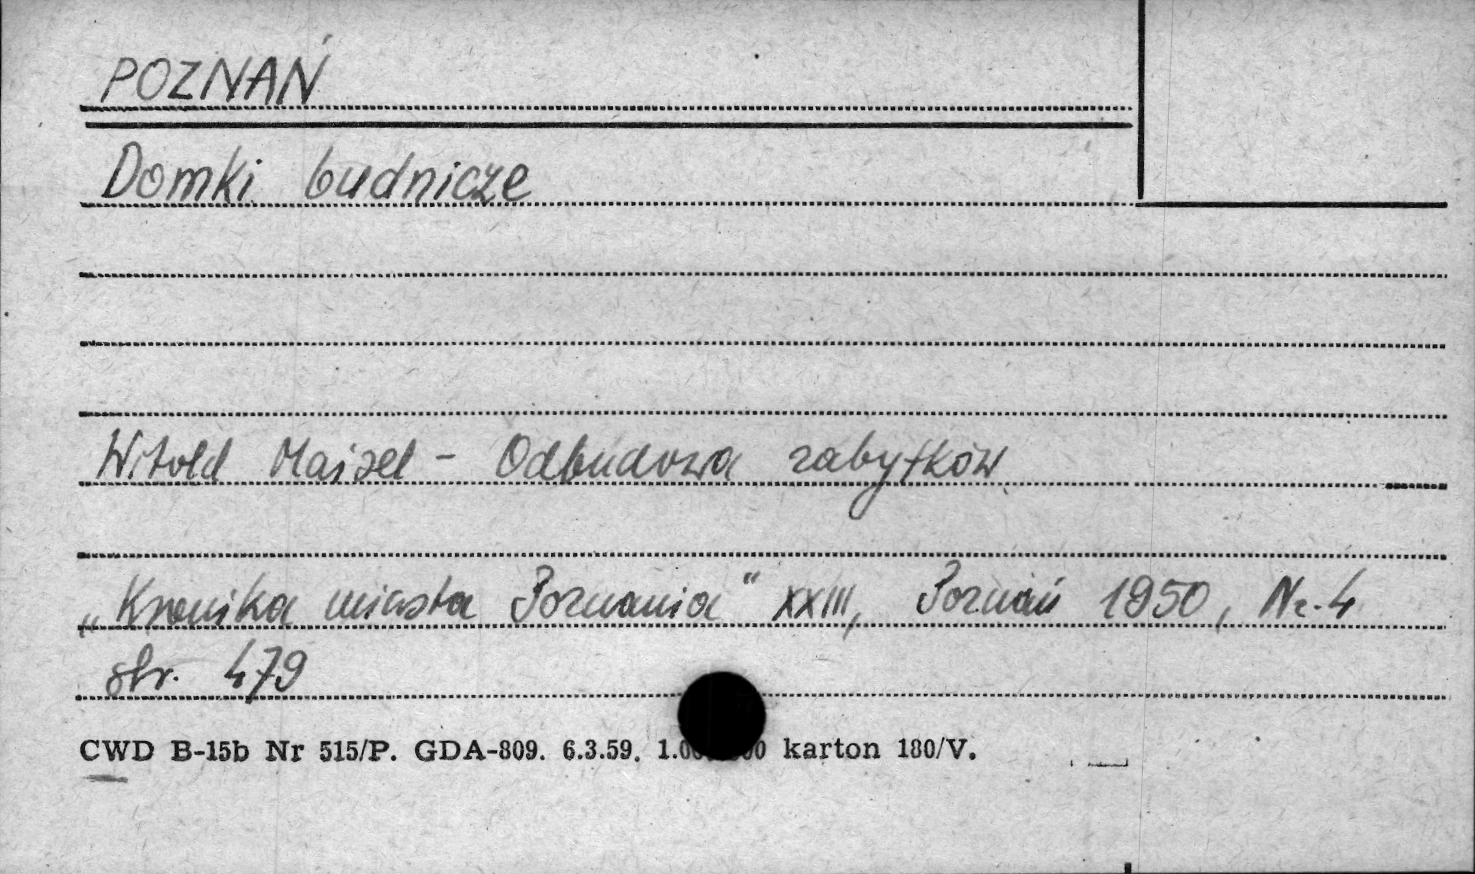 POZNAŃ
Domki budnicze
Witold Maisel - Odbudowa zabytków
„Kronika miasta Poznania" XXIII, Poznań 1950, Nr. 4
str. 479
CWD B-15b Nr 515/P. GDA-809. 6.3.59. karton 180/V.